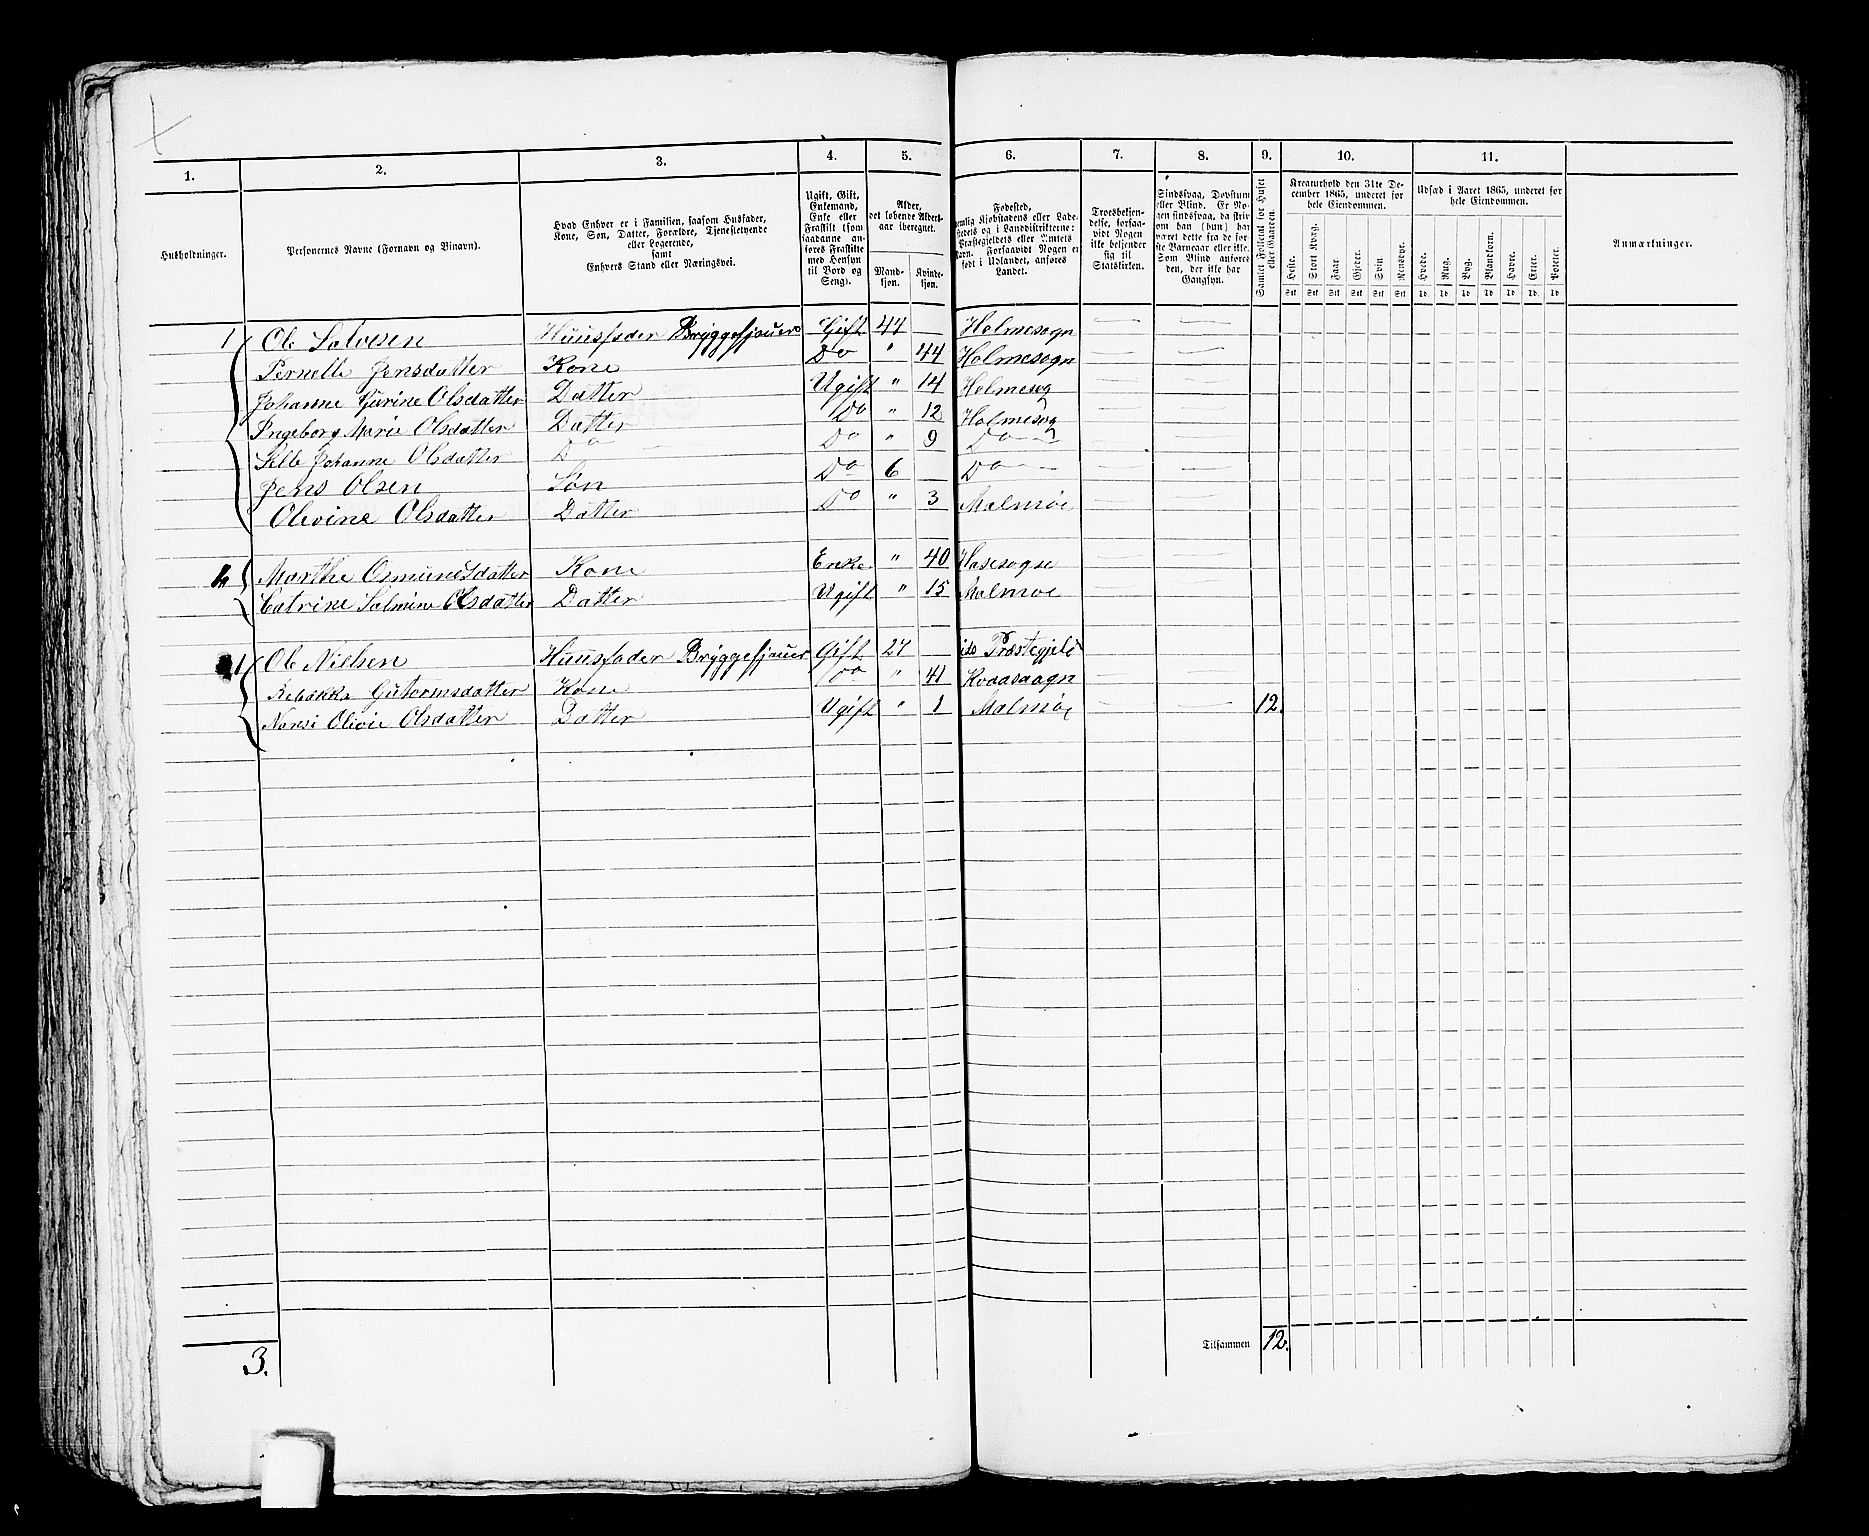 1. 2. 3. 4. 5. 6. 7. 8. 9. 10. 11.
Husholdninger.
Personernes Navne (Fornavn og Binavn).
Hvad Enhver er i Familien, saasom Husfader,
Kone, Søn, Datter, Forældre, Tjenestetyende
eller Logerende,
samt
Enhvers Stand eller Næringsvei.
Ugift, Gift,
Enkemand,
Enke eller
Fraskilt (som
saadanne an-
føres Fraskilte
med Hensyn
til Bord og
Seng).
Alder,
det løbende Alders-
aar iberegnet.
Mand-
kjøn.
Kvinde-
kjøn.
Fødested,
nemlig Kjøbstadens eller Lade-
stedets og i Landdistrikterne:
Præstegjeldets eller Amtets
Navn. Forsaavidt Nogen er
født i Udlandet, anføres
Landet.
Troesbekjen-
delse, forsaa-
vidt Nogen
ikke bekjender
sig til
Statskirken.
Sindssvag, Døvstum
eller Blind. Er No-
gen sindssvag, da skriv
om han (hun) har
været dette fra de før-
ste Barneaar eller ikke.
Som Blind anføres
den, der ikke har
Gangsyn.
Samlet Folketal for Huset
eller Gaarden.
Kreaturhold den 31te De-
cember 1865, underet for
hele Eiendommen.
Heste. Stort Kvæg. Faar. Gjeder. Svin. Rensdyr.
Stk Stk Stk Stk Stk Stk
Udsæd i Aaret 1865, underet for
hele Eiendommen.
Hvede. Rug. Byg. Blandkorn. Havre. Erter. Poteter.
Td. Td. Td. Td. Td. Td. Td.
Anmærkninger.
1 Ole Salvesen Huusfader Bryggesjauer Gift 44 — Holmesogn — —
Pernelle Jensdatter Kone Do " 44 Holmesogn — —
Johanne Gurine Olsdatter Datter Ugift " 14 Holmesog — —
Ingeborg Marie Olsdatter Datter Do " 12 Holmesog — —
Olsdatter Do Do " 9 Do — —
Jens Olsen Søn Do 6 — Do — —
Olevine Olsdatter Datter Do " 3 Malmøe — —
Marthe Osmundsdatter Kone Enke " 40 — —
Catrine Salmine Olsdatter Datter Ugift " 15 Malmøe — —
1 Ole Nielsen Huusfader Bryggesjauer Gift 27 — Præstegjeld
Rebækka Gutormsdatter Kone Do " 41
Olsdatter Datter Ugift " 1 Malmøe — — 12.
3. Tilsammen 12.